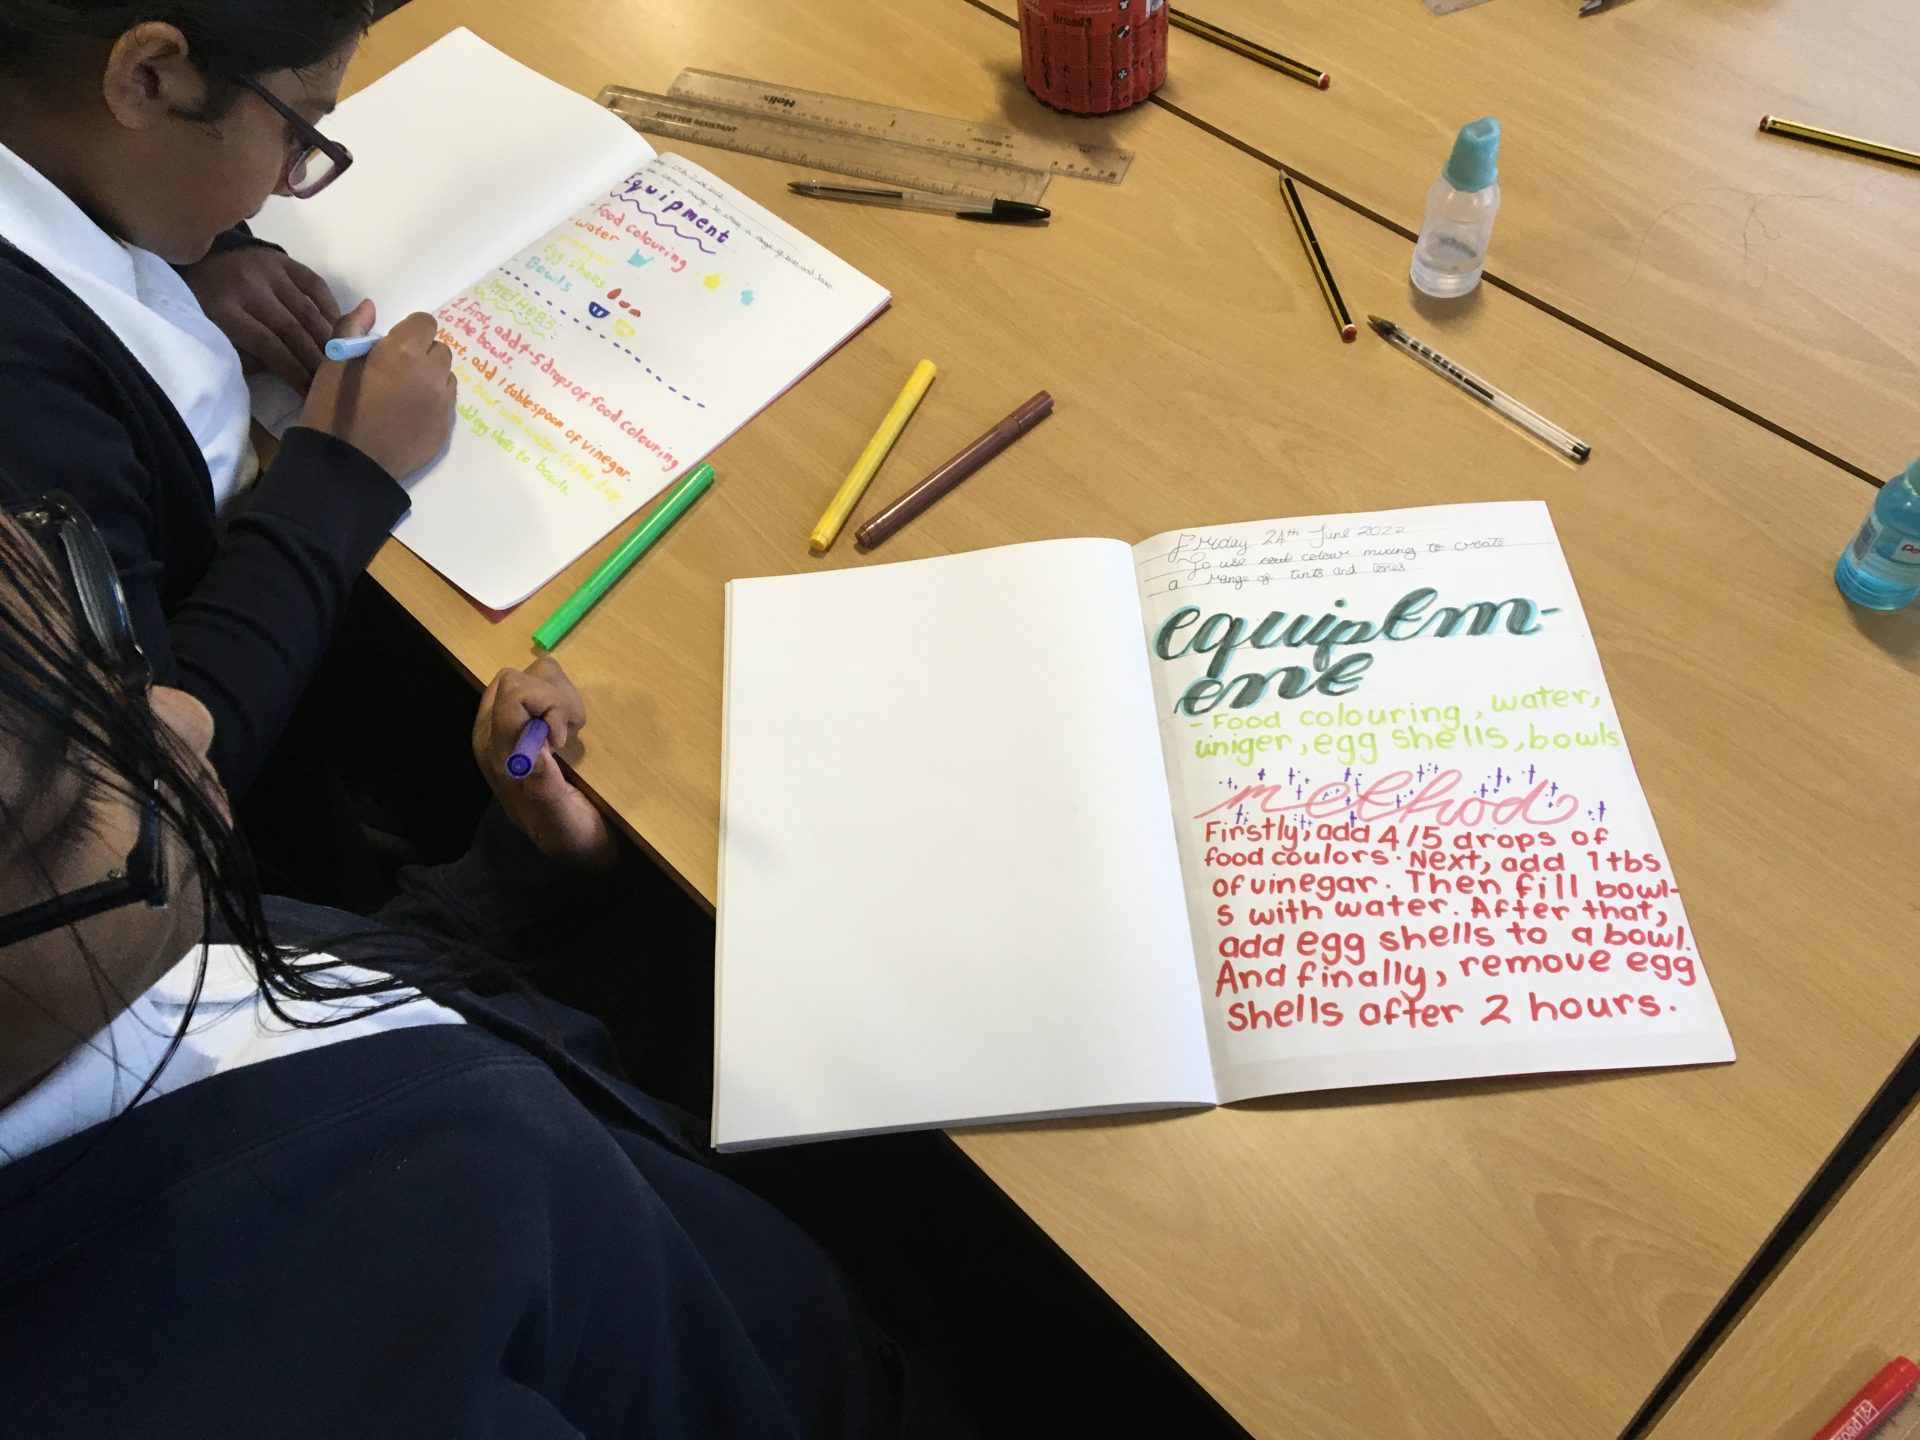 Equipment
- Food colouring
- water
vinegar
Egg shells
Bowls
METHODS
1. First, add 4-5 drops of food colouring
to the bowls.
Next, add 1 tablespoon of vinegar.
fill bowl with water to the top.
add egg shells to bowls.
Helix
SHATTER RESISTANT
Friday 24th June 2022
To use colour mixing to create
a range of tints and tones
equipem-
ent
- Food colouring, water,
viniger, egg shells, bowls
method
Firstly, add 4/5 drops of
food coulors. Next, add 1 tbs
of vinegar. Then fill bowl-
s with water. After that,
add egg shells to a bowl.
And finally, remove egg
shells after 2 hours.